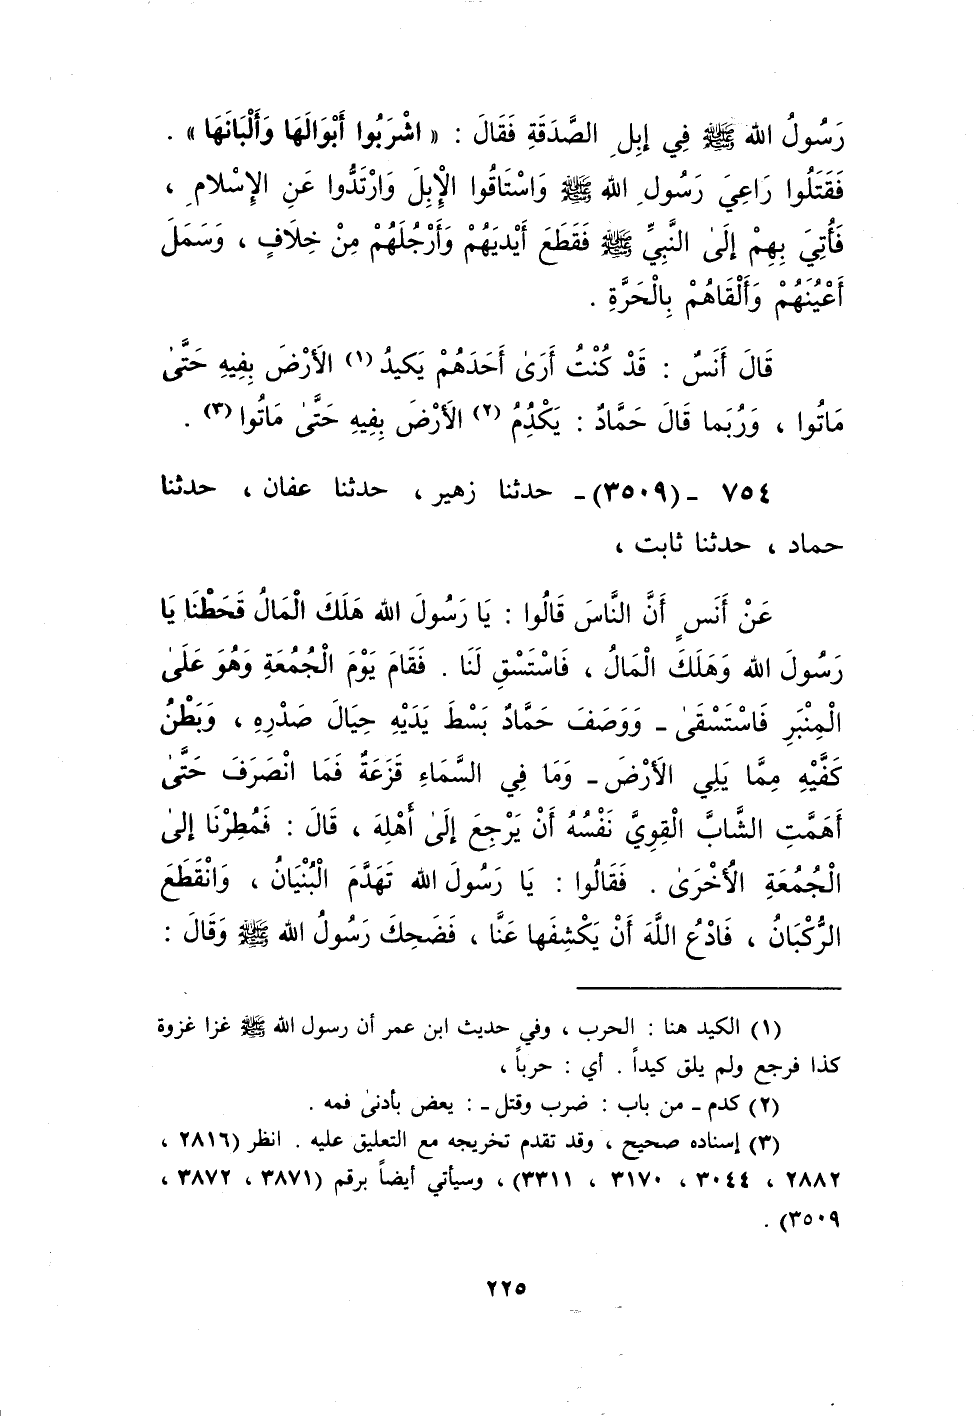 رَسُولُ الله ﷺ فِي إِبِلِ الصَّدَقَةِ فَقَالَ : « اشْرَبُوا أَبْوَالَهَا وَأَلْبَانَهَا » .
فَقَتَلُوا رَاعِيَ رَسُولِ الله ﷺ وَاسْتَاقُوا الْإِبِلَ وَارْتَدُّوا عَنِ الإِسْلامِ ،
فَأُتِيَ بِهِمْ إِلَىٰ النَّبِيِّ ﷺ فَقَطَعَ أَيْدِيَهُمْ وَأَرْجُلَهُمْ مِنْ خِلَافٍ ، وَسَمَلَ
أَعْيُنَهُمْ وَأَلْقَاهُمْ بِالْحَرَّةِ .
قَالَ أَنَسٌ : قَدْ كُنْتُ أَرَىٰ أَحَدَهُمْ يَكيدُ (١) الأَرْضَ بِفِيهِ حَتَّىٰ
مَاتُوا ، وَرُبَما قَالَ حَمَّادٌ : يَكْدُِمُ (٢) الأَرْضَ بِفِيهِ حَتَّىٰ مَاتُوا (٣) .
٧٥٤ ـ (٣٥٠٩)ـ حدثنا زهير ، حدثنا عفان ، حدثنا
حماد ، حدثنا ثابت ،
عَنْ أَنَسٍ أَنَّ النَّاسَ قَالُوا : يَا رَسُولَ الله هَلَكَ الْمَالُ قَحَطْنَا يَا
رَسُولَ الله وَهَلَكَ الْمَالُ ، فَاسْتَسْقِ لَنَا . فَقَامَ يَوْمَ الْجُمُعَةِ وَهُوَ عَلَىٰ
الْمِنْبَرِ فَاسْتَسْقَىٰ ـ وَوَصَفَ حَمَّادٌ بَسْطَ يَدَيْهِ حِيَالَ صَدْرِهِ ، وَبَطْنُ
كَفَّيْهِ مِمَّا يَلِي الأَرْضَ ـ وَمَا فِي السَّمَاءِ قَزَعَةٌ فَمَا انْصَرَفَ حَتَّىٰ
أَهَمَّتِ الشَّابَّ الْقَوِيَّ نَفْسُهُ أَنْ يَرْجِعَ إِلَىٰ أَهْلِهَ ، قَالَ : فَمُطِرْنَا إِلىٰ
الْجُمُعَةِ الأُخْرَىٰ . فَقَالُوا : يَا رَسُولَ الله تَهَدَّمَ الْبُنْيَانُ ، وَانْقَطَعَ
الرُّكْبَانُ ، فَادْعُ اللَّهَ أَنْ يَكْشِفَها عَنَّا ، فَضَحِكَ رَسُولُ الله ﷺ وَقَالَ :
(١) الكيد هنا : الحرب ، وفي حديث ابن عمر أن رسول الله ﷺ غزا غزوة
كذا فرجع ولم يلق كيداً . أي : حرباً ،
(٢) كدم ـ من باب : ضرب وقتل ـ : يعض بأدنىٰ فمه .
(٣) إسناده صحيح ، وقد تقدم تخريجه مع التعليق عليه . انظر (٢٨١٦ ،
٢٨٨٢ ، ٣٠٤٤ ، ٣١٧٠ ، ٣٣١١) ، وسيأتي أيضاً برقم (٣٨٧١ ، ٣٨٧٢ ،
٣٥٠٩) .
٢٢٥